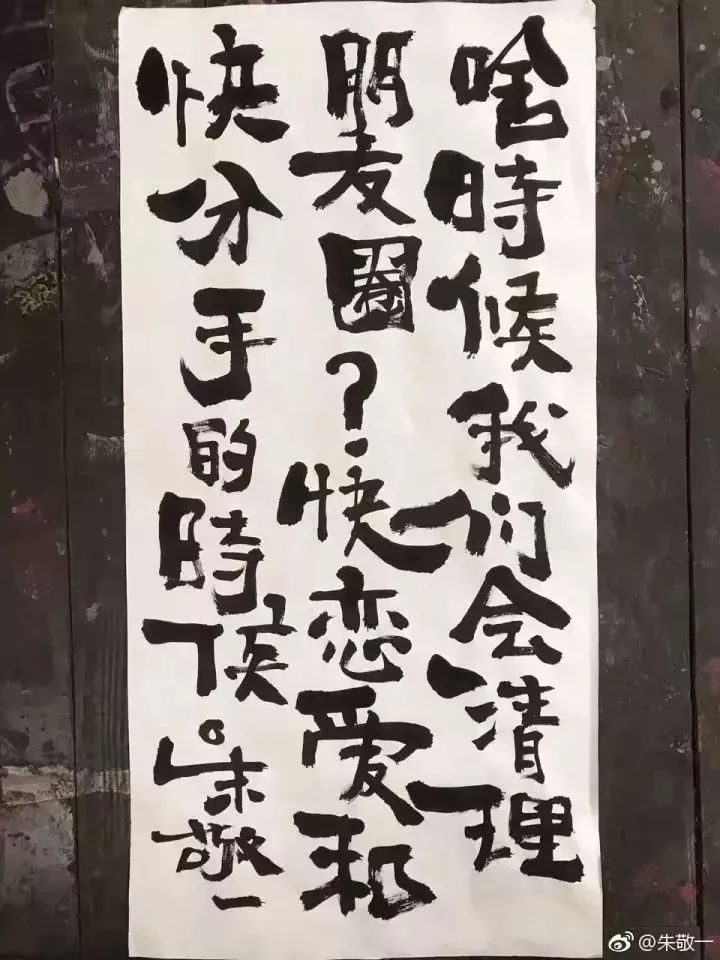 啥時候我们会清理
朋友圈？快恋爱和
快分手的時候。朱敬一
@朱敬一